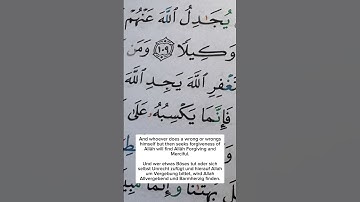 يُجَـٰدِلُ ٱللَّهَ عَنْهُمْ
وَكِيلًا ١٠٩ وَمَن
ٱللَّهَ يَجِدِ ٱللَّهَ
فَإِنَّمَا يَكْسِبُهُۥ عَلَىٰ
And whoever does a wrong or wrongs
himself but then seeks forgiveness of
Allah will find Allah Forgiving and
Merciful.
Und wer etwas Böses tut oder sich
selbst Unrecht zufügt und hierauf Allah
um Vergebung bittet, wird Allah
Allvergebend und Barmherzig finden.